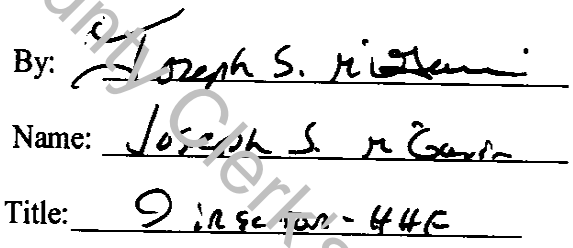 By: Joseph S. McGavin
Name: Joseph S. McGavin
Title: Director - HHF
unty Clerks